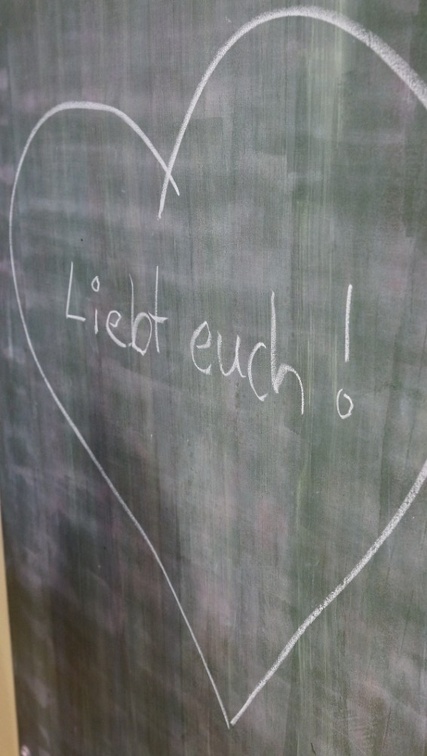 Liebt euch!